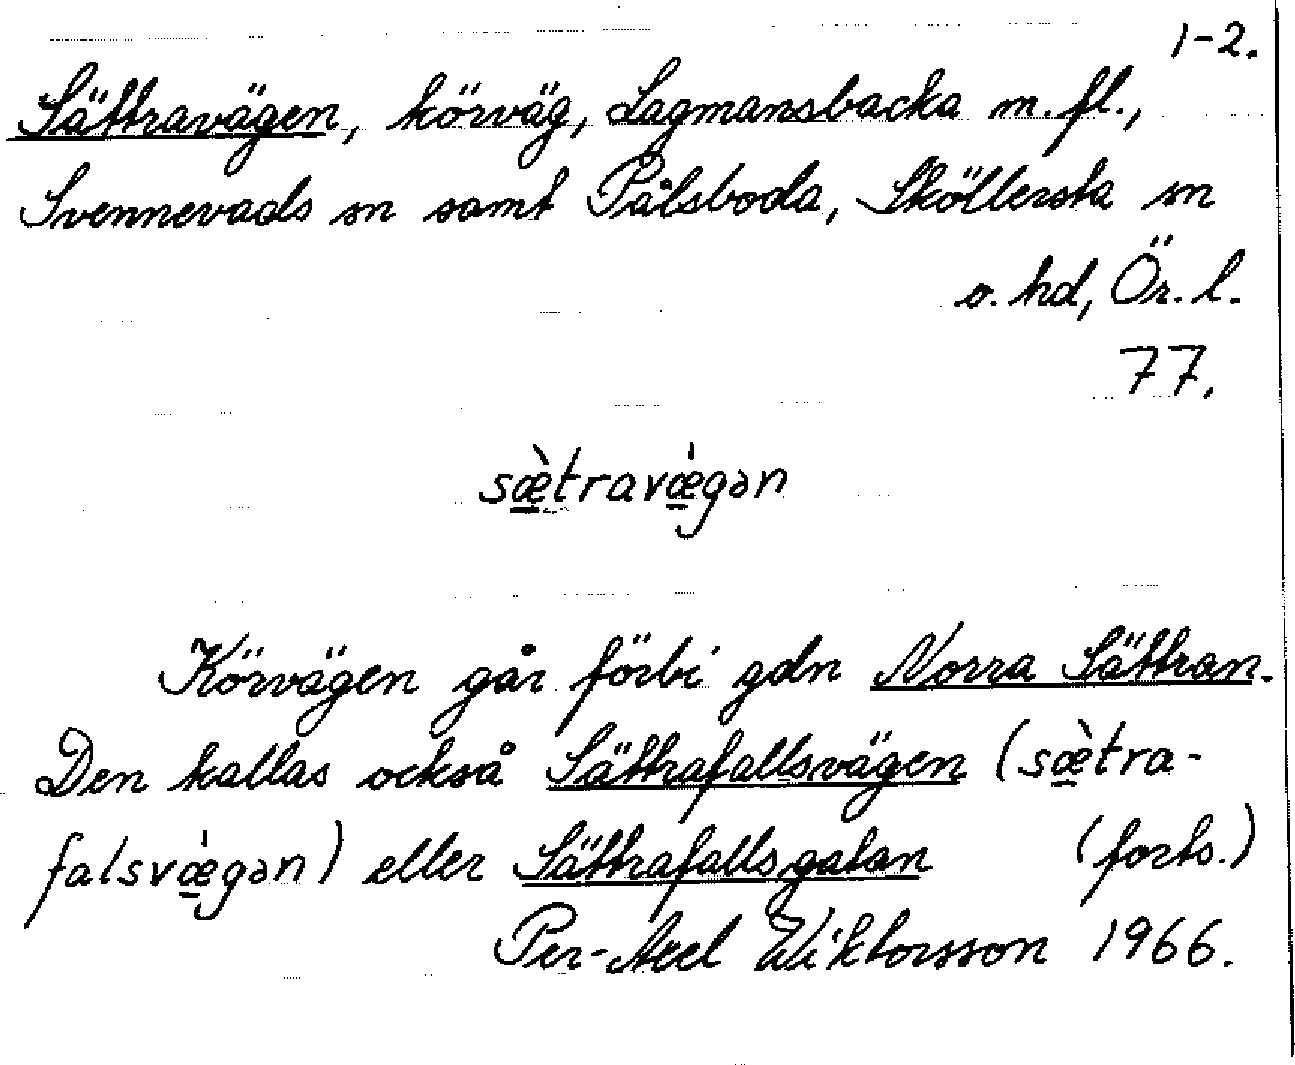 1-2.
Sättravägen, körväg, Lagmansbacka m. fl.,
Svennevads sn samt Pålsboda, Sköllersta sn
o. hd, Ör. l.
77.
sæ̱̀travǽ̱gən
Körvägen går förbi gdn Norra Sättran.
Den kallas också Sättrafallsvägen (sæ̱̀tra-
falsvǽ̱gən) eller Sättrafallsgatan (forts.)
Per-Axel Wiktorsson 1966.